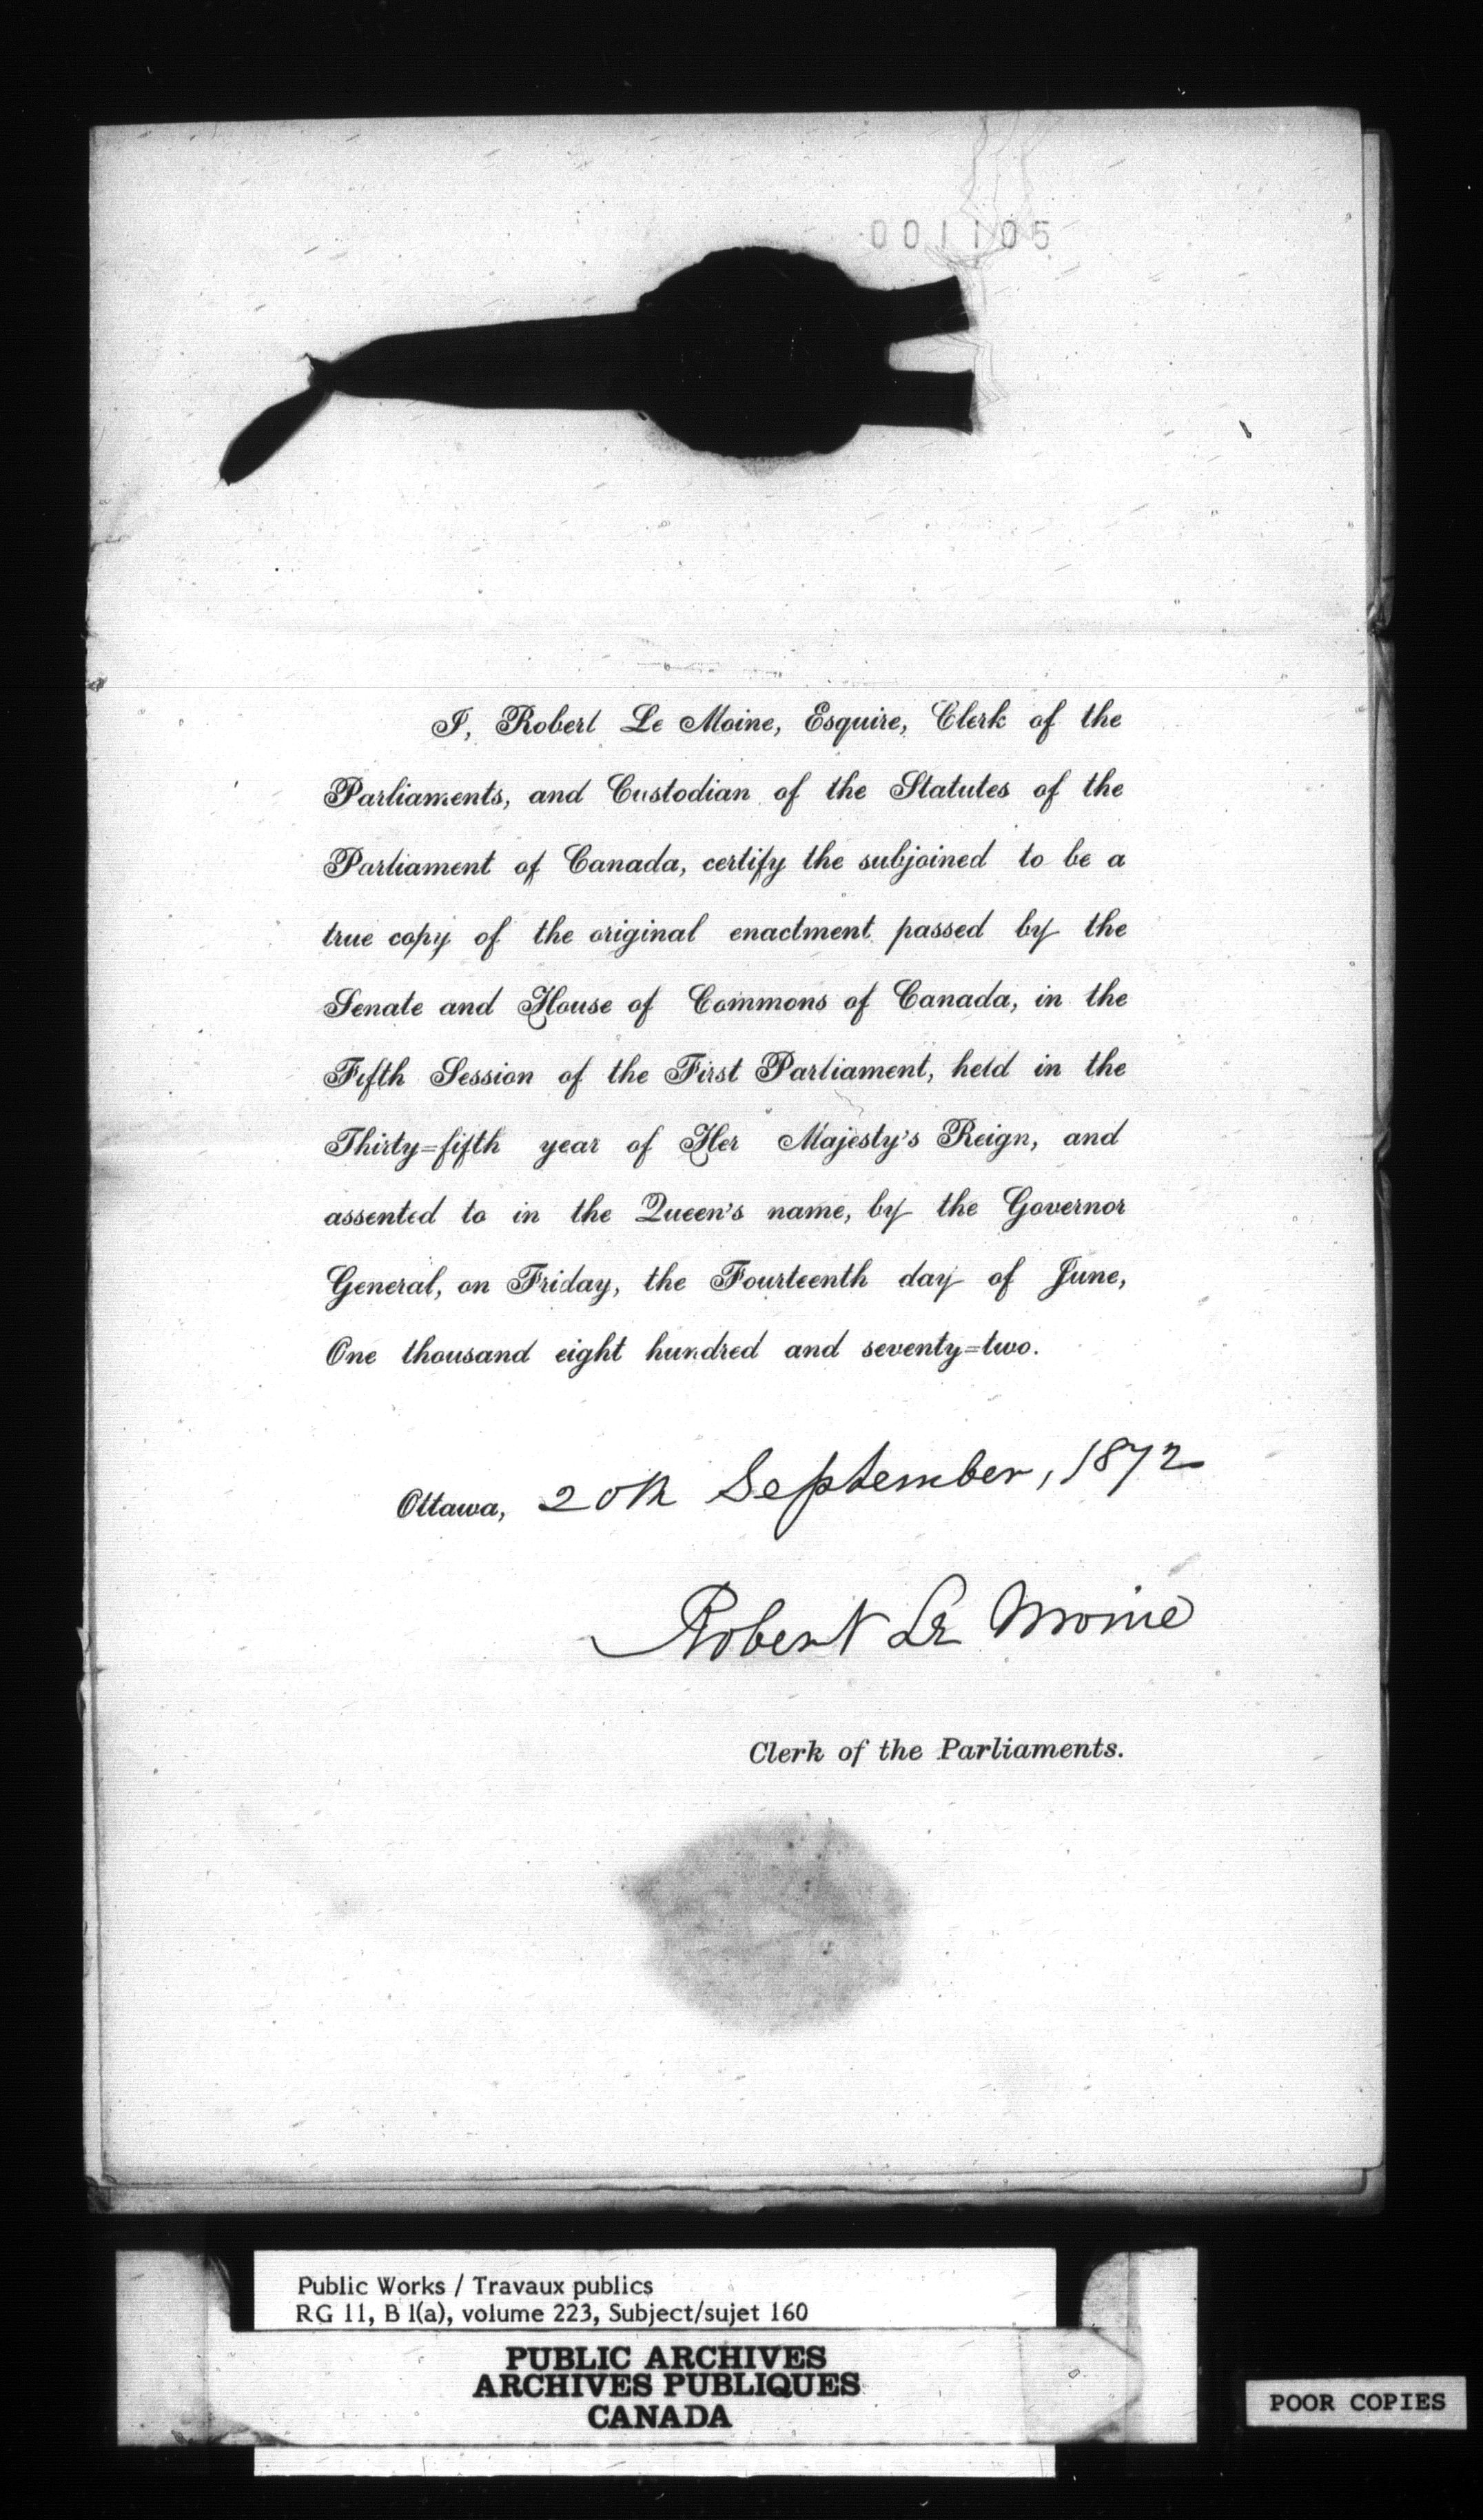 001105
I, Robert Le Moine, Esquire, Clerk of the
Parliaments, and Custodian of the Statutes of the
Parliament of Canada, certify the subjoined to be a
true copy of the original enactment passed by the
Senate and House of Commons of Canada, in the
Fifth Session of the First Parliament, held in the
Thirty=fifth year of Her Majesty's Reign, and
assented to in the Queen's name, by the Governor
General, on Friday, the Fourteenth day of June,
One thousand eight hundred and seventy=two.
Ottawa, 20th September, 1872
Robert Le Moine
Clerk of the Parliaments.
Public Works / Travaux publics
RG 11, B 1(a), volume 223, Subject/sujet 160
PUBLIC ARCHIVES
ARCHIVES PUBLIQUES
CANADA
POOR COPIES